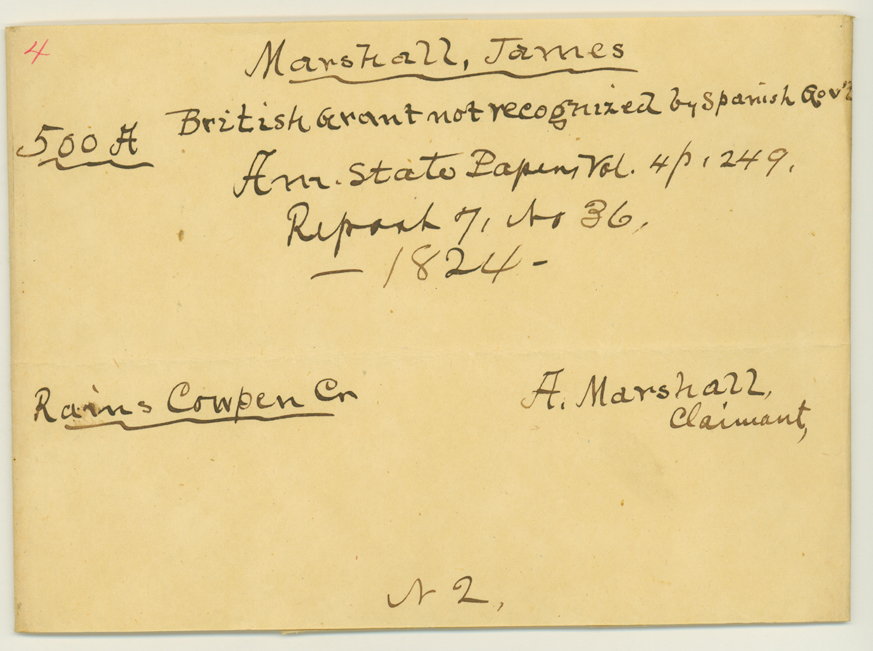 4
Marshall, James
500 A British Grant not recognized by Spanish Gov't
Am. State Papers, Vol. 4 p. 249.
Report 7, No 36.
— 1824 -
Rains Cowpen Cr
A. Marshall,
Claimant,
N 2,